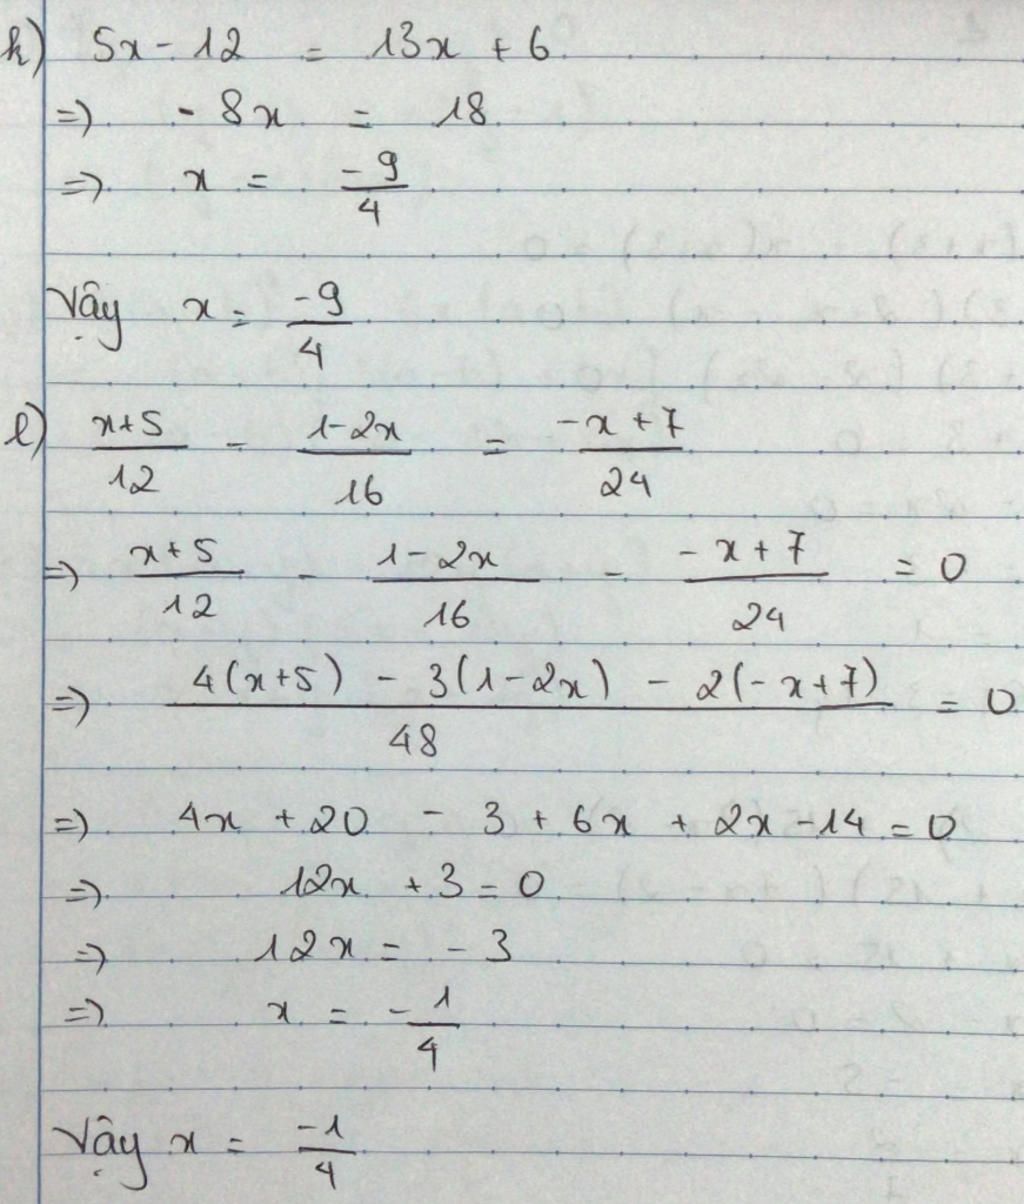 k) 5x - 12 = 13x + 6
=> - 8x = 18
=> x = \frac{-9}{4}
Vậy x = \frac{-9}{4}
l) \frac{x+5}{12} - \frac{1-2x}{16} = \frac{-x+7}{24}
=> \frac{x+5}{12} - \frac{1-2x}{16} - \frac{-x+7}{24} = 0
=> \frac{4(x+5) - 3(1-2x) - 2(-x+7)}{48} = 0
=> 4x + 20 - 3 + 6x + 2x - 14 = 0
=> 12x + 3 = 0
=> 12x = - 3
=> x = -\frac{1}{4}
Vậy x = \frac{-1}{4}